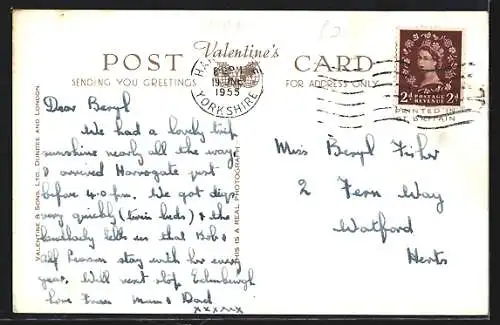 POST Valentine's CARD
SENDING YOU GREETINGS
FOR ADDRESS ONLY
8 PM
19 JNE
1955
YORKSHIRE
2d POSTAGE REVENUE 2d
PRINTED IN
BRITAIN
VALENTINE & SONS, LTD. DUNDEE AND LONDON
THIS IS A REAL PHOTOGRAPH
Dear Beryl
We had a lovely trip
sunshine nearly all the way
& arrived Harrogate just
before 4.0 p.m. We got digs
very quickly (twin beds) & the
landlady tells us that Bob &
Alf Pearson stay with her every
year. Will next stop Edinburgh
love from Mum & Dad
xxxxxx
Miss Beryl Fisher
2 Fern Way
Watford
Herts